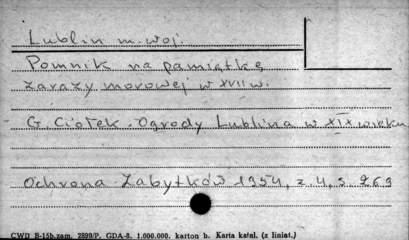 Lublin m. woj.
Pomnik na pamiątkę
zarazy morowej w XVII w.
G. Ciołek. Ogrody Lublina w XIX wieku
Ochrona Zabytków 1954, z 4, s. 269
CWD B-15b.zam. 2899/P. GDA-8. 1.000.000. karton b. Karta katal. (z liniat.)